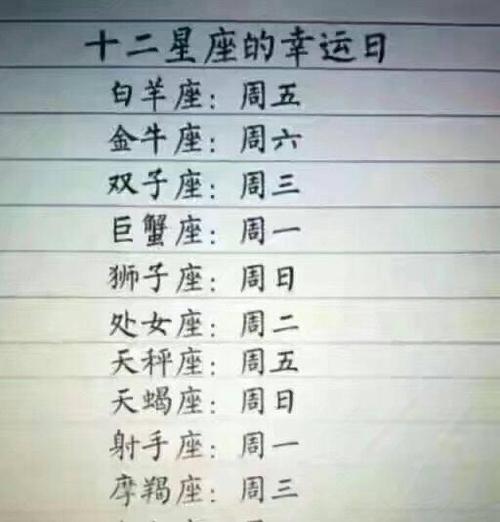 十二星座的幸运日
白羊座：周五
金牛座：周六
双子座：周三
巨蟹座：周一
狮子座：周日
处女座：周二
天秤座：周五
天蝎座：周日
射手座：周一
摩羯座：周三